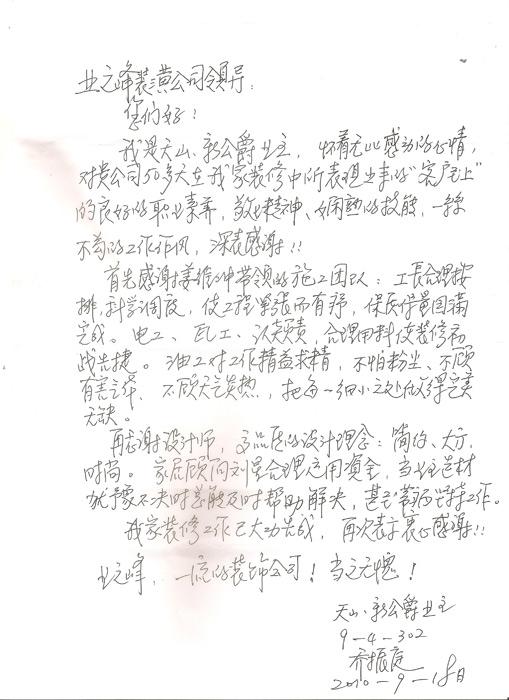 业之峰装潢公司领导:
您们好!
我是天山·新公爵业主，怀着无比感动的心情，
对贵公司50多天在我家装修中所表现出来的"客户至上"
的良好的职业素养，敬业精神、娴熟的技能，一丝
不苟的工作作风，深表感谢!!
首先感谢姜维冲带领的施工团队:工长合理按
排，科学调度，使工程紧张而有序，保质保量圆满
完成。电工、瓦工、认真负责，合理用料使装修初
战告捷。油工对工作精益求精，不怕粉尘、不顾
有害之华、不顾天气炎热，把每一细小之处做得完美
无缺。
再感谢设计师，高品质的设计理念:简约、大方、
时尚。家居顾问刘昱合理运用资金，当业主选材
犹予不决时总能及时帮助解决，甚至带病坚持工作。
我家装修工作已大功告成，再次表示衷心感谢!!
业之峰，一流的装饰公司!当之无愧!
天山·新公爵业主
9-4-302
乔振庭
2010-9-18日